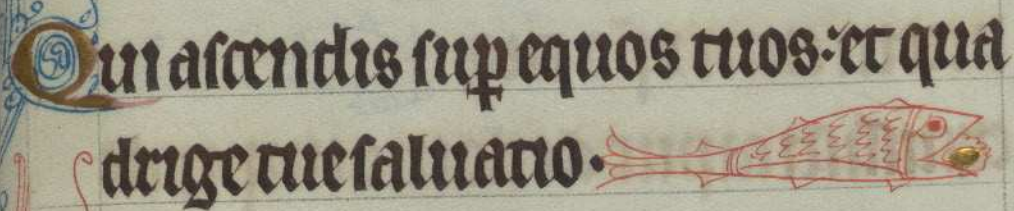 Qui ascendis sup equos tuos: et qua
drige tue saluatio.